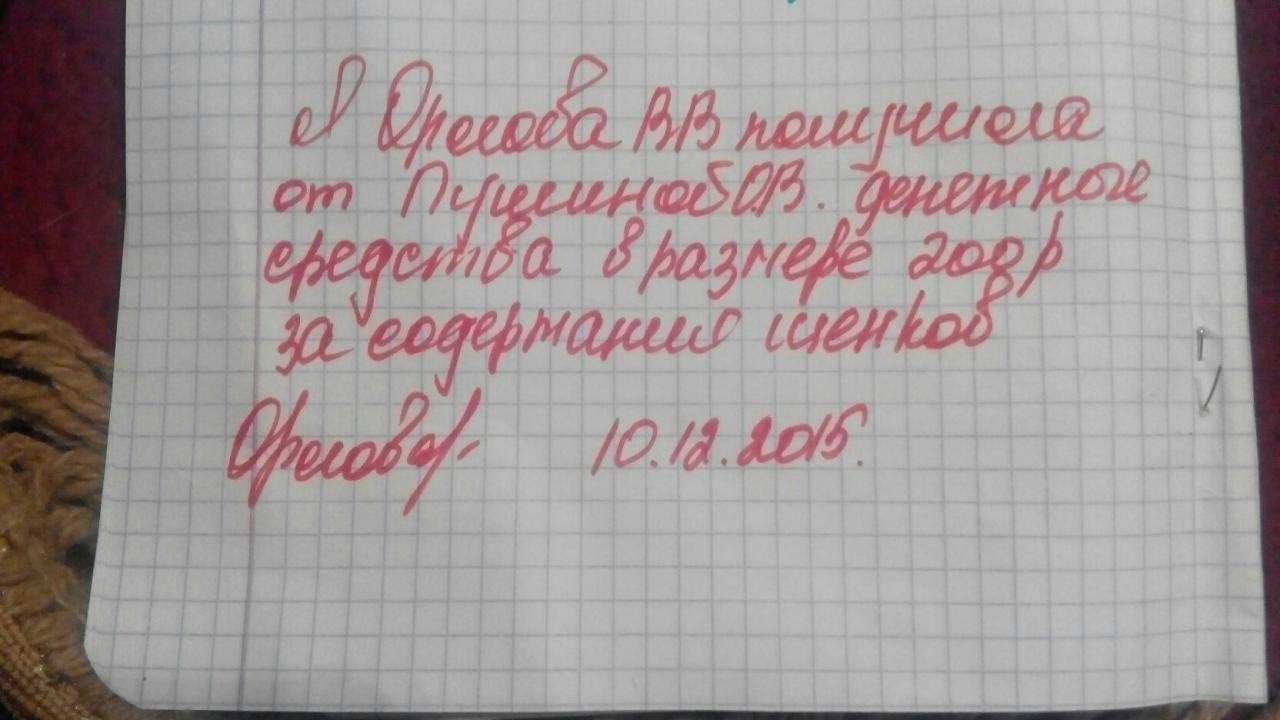 Я Орлова ВВ получила
от Пушиной О.В. денежные
средства в размере 2000р
за содержания щенков
Орлова 10.12.2015.